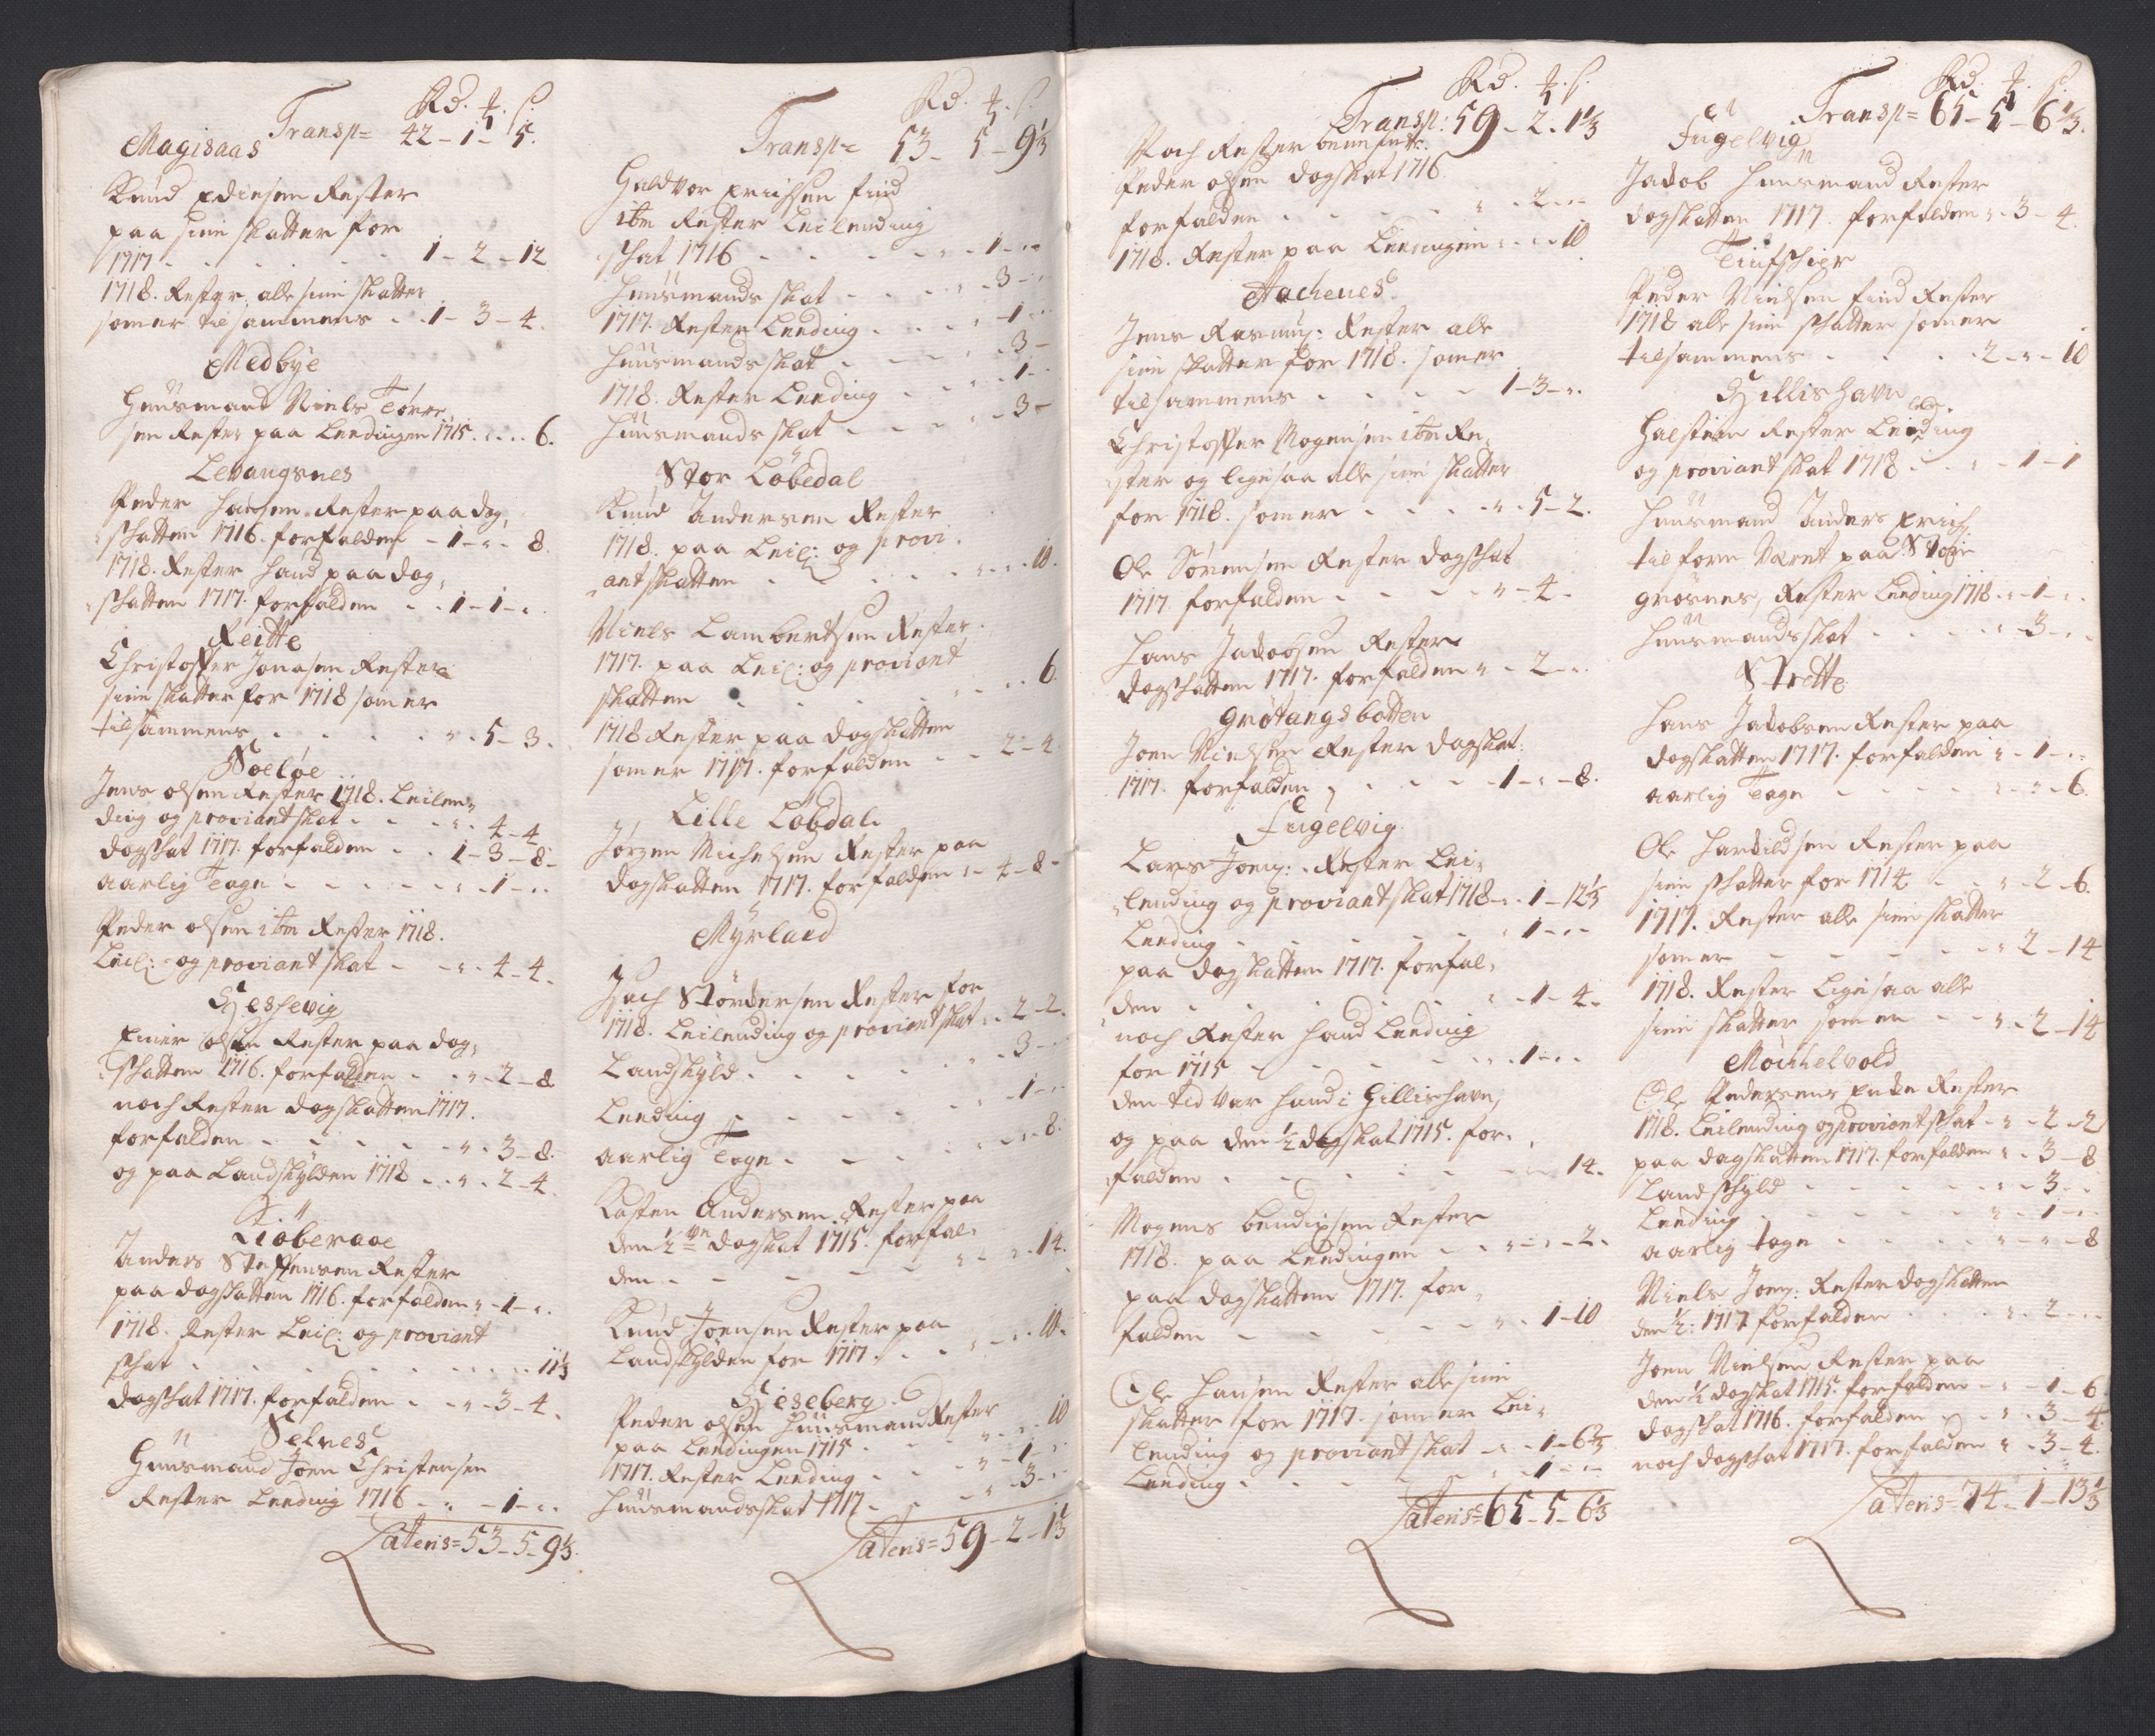 Rd. ʒ. s.
Transp= 42 - 1 - 5.
Magisaas
Knud Ediensen Rester
paa sine skatter for
1717 - - - - - 1 - 2 - 12
1718. Rester alle sine skatter
som er tilsammens - - 1 - 3 - 4.
Medbye
Huusmand Niels Tønne,
sen Rester paa Leedingen 1715. - - - 6.
Levangsnes
Peder Hansen Rester paa dog,
skatten 1716. forfalden - 1 - „ - 8.
1718. Rester hand paa dog,
skatten 1717. forfalden - - 1 - 1 - „.
Reitte
Christoffer Jonasen Rester
sine skatter for 1718 som er
tilsammens - - - - „ - 5 - 3.
Soeløe
Jens olsen Rester 1718. Leilen,
ding og proviantskat - - - „ - 4 - 4
dogskat 1717. forfalden - - 1 - 3 - 8 -
aarlig Tage - - - - „ - 1 - „.
Peder olsen itm Rester 1718.
Leil: og proviant skat - - „ - 4 - 4.
Hessevig
Einer olsen Rester paa dog,
skatten 1716. forfalden - - „ - 2 - 8.
noch Rester dogskatten 1717.
forfalden - - - - „ - 3 - 8.
og paa Landskylden 1718 - - „ - 2 - 4.
Kioberaae
Anders Steffensen Rester
paa dogskatten 1716. forfalden „ - 1 - „.
1718. Rester Leil: og proviant
skat - - - - - - - 11⅓
dogskat 1717. forfalden - - „ - 3 - 4.
Selnes
Huusmand Joen Christensen
Rester Leeding 1716 - „ - 1 - „.
Lateris = 53 - 5 - 9⅓.
Rd. ʒ. s.
Transp= 53 - 5 - 9⅓
Haldvor Erichsen find
itm Rester Leilending
skat 1716 - - - - „ - 1 - „
Huusmands skat - - - „ - 3 - „
1717. Rester Leeding - - - „ - 1 - „
Huusmandsskat - - - „ - 3 -
1718. Rester Leeding - - - „ - 1 - „
Huusmandsskat - - - „ - 3 -
Stor Løbedal
Knud Andersen Rester
1718. paa Leil: og provi,
antskatten - - - - „ - „ - 10.
Niels Lambertsen Rester.
1717. paa Leil: og proviant
skatten - - - - „ - „ - 6.
1718 Rester paa dogskatten
som er 1717. forfalden - - 2 - 4
Lille Løbdal.
Jørgen Michelsen Rester paa
dogskatten 1717. forfalden „ - 4 - 8 -
Myrland
Zach Størdersen Rester for
1718. Leilending og proviantskat „ - 2 - 2.
Landskyld - - - - „ - 3 - „
Leeding - - - - - „ - 1 - „
aarlig Tage - - - - „ - „ - 8.
Casten Andersen Rester paa
den ½ dogskat 1715. forfal,
den - - - - - „ - „ - 14.
Knud Joensen Rester paa
Landskylden for 1717. - - „ - „ - 10.
Hiseberg
Peder olsen Huusmand Rester
paa Leedingen 1715 - - - „ - „ - 10
1717. Rester Leeding - - - „ - 1 - „.
Huusmandsskat 1717 - - - „ - 3 - „
Lateris = 59 - 2 - 1⅓
Rd. ʒ. s.
Transp: 59 - 2 - 1⅓
Noch Rester
Peder olsen dogskat 1716
forfalden - - - - „ - 2 - „
1718. Rester paa Leedingen „ - „ - 10
Aachenes
Jens Rasmus: Rester alle
sine skatter for 1718. som er
tilsammens - - - - 1 - 3 - „.
Christoffer Mogensen itm Re,
ster og ligesaa alle sine skatter
for 1718. som er - - - „ - 5 - 2.
Ole Sørensen Rester dogskat
1717. forfalden - - - - „ - 4 -
Hans Jacobsen Rester
dogskatten 1717. forfalden „ - 2 - „.
Grøtangsbotten
Joen Nielsen Rester dogskat:
1717. forfalden - - - - 1 - „ - 8.
Fugelvig
Lars Joens: Rester Lei,
lending og proviant skat 1718 - „ - 1 - 12⅓
Leeding - - - - - „ - 1 - „
paa dogskatten 1717. forfal,
den - - - - - - „ - 1 - 4.
noch Rester hand Leeding
for 1715 - - - - - „ - 1 - „
den tid var hand i Gillishavn,
og paa den ½ dogskat 1715. for,
falden - - - - - „ - „ - 14.
Mogens Bendixsen Rester
1718. paa Leedingen - - „ - „ - 2.
paa dogskatten 1717. for,
falden - - - - - „ - 1 - 10
Ole Hansen Rester alle sine
skatter for 1717. som er Lei,
lending og proviant skat - „ - 1 - 6⅔
Leeding - - - - - „ - 1 - „
Lateris = 65 - 5 - 6⅓
Rd. ʒ. s.
Transp= 65 - 5 - 6⅓.
Fugelvig
Jacob Huusmand Rester
dogskatten 1717. forfalden „ - 3 - 4.
Tiufskier
Peder Nielsen find Rester
1718 alle sine skatter som er
tilsammens - - - - 2 - „ - 10
Hillishavn
Halsten Rester Leeding
og proviant skat 1718 - - „ - 1 - 1
Huusmand Anders Erich,
til forn været paa Store
grøsnes, Rester Leeding 1718 - „ - 1 - „.
Huusmandsskat - - - - „ - 3 - „
Strette
Hans Jacobsen Rester paa
dogskatten 1717. forfalden „ - 1 - „
aarlig Tage - - - - „ - „ - 6.
Ole Harildsen Rester paa
sine skatter for 1714 - - „ - 2 - 6.
1717. Rester alle sine skatter
som er - - - - - „ 2 - 14
1718. Rester Ligesaa alle
sine skatter som er - - „ - 2 - 14
Mochelvold
Ole Pedersens Enke Rester
1718. Leilending og proviantskat - „ - 2 - 2
paa dogskatten 1717. forfalden „ - 3 - 8
Landskyld - - - - - „ - 3 - „
Leeding - - - - - „ - 1 - „
aarlig tage - - - - „ - „ - 8
Niels Joens: Rester dogskatten
den ½: 1717 forfalden - - - „ - 2 - „
Joen Nielsen Rester paa
den ½ dogskat 1715. forfalden - „ - 1 - 6
dogskat 1716. forfalden - - „ - 3 - 4.
noch dogskat 1717. forfalden „ - 3 - 4.
Lateris = 74 - 1 - 13⅓